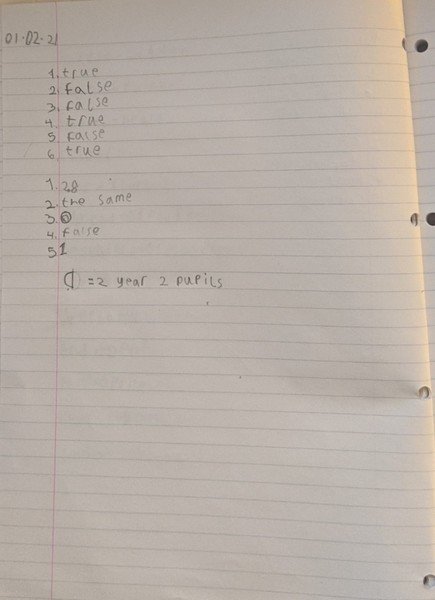 01.02.21
1. true
2. false
3. false
4. true
5. false
6. true
1. 28
2. the same
3. 6
4. false
5. 1
= 2 year 2 pupils